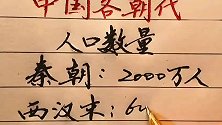 中国各朝代
人口数量
秦朝：2000万人
西汉末：6